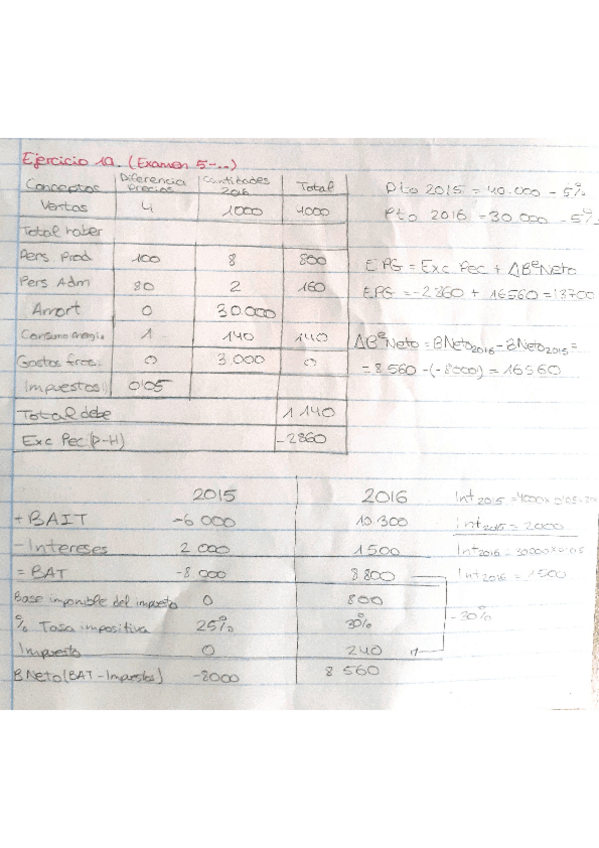 Ejercicio 10. (Examen 5-...)
Conceptos Diferencia Precios Cantidades 2016 Total
Ventas 4 1000 4000
Total haber
Pers Prod 100 8 800
Pers Adm 80 2 160
Amort 0 30000
Consumo energía 1 140 140
Gastos froc. 0 3.000 0
Impuestos 0'05
Total debe 1140
Exc Pec (D-H) -2860
Pto 2015 = 40.000 - 5%
Pto 2016 = 30.000 - 5%
EPG = Exc Pec + ΔBºNeto
EPG = -2860 + 16560 = 13700
ΔBºNeto = BNeto2016 - BNeto2015 =
= 8.560 - (-8000) = 16560
2015 2016
+ BAIT -6000 10.300
- Intereses 2.000 1500
= BAT -8.000 8.800
Base imponible del impuesto 0 800
% Tasa impositiva 25% 30%
Impuesto 0 240
B Neto (BAT - Impuestos) -8000 8560
Int 2015 = 40000 x 0'05 =
int 2015 = 2000
Int 2016 = 30000 x 0'05
Int 2016 = 1500
- 30%